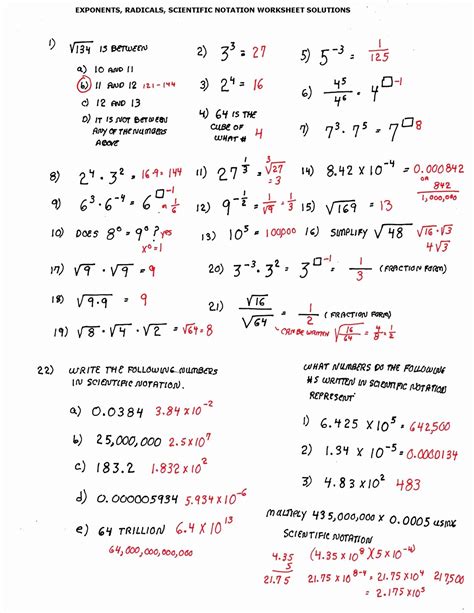 EXPONENTS, RADICALS, SCIENTIFIC NOTATION WORKSHEET SOLUTIONS
1) √134 IS BETWEEN
a) 10 AND 11
b) 11 AND 12 121-144
c) 12 AND 13
D) IT IS NOT BETWEEN
ANY OF THE NUMBERS
ABOVE
2) 3³ = 27
3) 2⁴ = 16
4) 64 IS THE
CUBE OF
WHAT # 4
5) 5⁻³ = 1/125
6) 4⁵/4⁶ = 4^□ -1
7) 7³·7⁵ = 7^□ 8
8) 2⁴·3² = 16·9 = 144
9) 6³·6⁻⁴ = 6^□ -1 or 1/6
10) DOES 8⁰ = 9⁰? yes
x⁰ = 1
11) 27^(1/3) = ∛27
= 3
12) 9^(-1/2) = 1/√9 = 1/3
13) 10⁵ = 100000
14) 8.42 X 10⁻⁴ = 0.000842
OR
842/1,000,000
15) √169 = 13
16) SIMPLIFY √48 √16·√3
4√3
17) √9 · √9 = 9
18) √9·9 = 9
19) √8·√4·√2 = √64 = 8
20) 3⁻³·3² = 3^□ -1 = 1/3 (FRACTION FORM)
21) √16/√64 = 1/2 (FRACTION FORM)
CAN BE WRITTEN √16/64 = 4/8 = 1/2
22) WRITE THE FOLLOWING NUMBERS
IN SCIENTIFIC NOTATION.
a) 0.0384 3.84 x 10⁻²
b) 25,000,000 2.5 x 10⁷
c) 183.2 1.832 x 10²
d) 0.000005934 5.934 x 10⁻⁶
e) 64 TRILLION 6.4 x 10¹³
64,000,000,000,000
WHAT NUMBERS DO THE FOLLOWING
#S WRITTEN IN SCIENTIFIC NOTATION
REPRESENT?
1) 6.425 X 10⁵ = 642,500
2) 1.34 X 10⁻⁵ = 0.0000134
3) 4.83 X 10² 483
MULTIPLY 435,000,000 X 0.0005 USING
SCIENTIFIC NOTATION
4.35
5
21.75
(4.35 x 10⁸)(5 x 10⁻⁴)
21.75 x 10⁸⁻⁴ = 21.75 x 10⁴ 217,500
= 2.175 x 10⁵